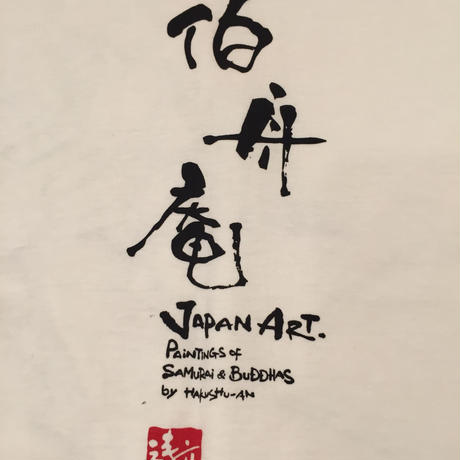 伯
舟
庵
JAPAN ART.
PAINTINGS of
SAMURAI & BUDDHAS
by HAKUSHU-AN